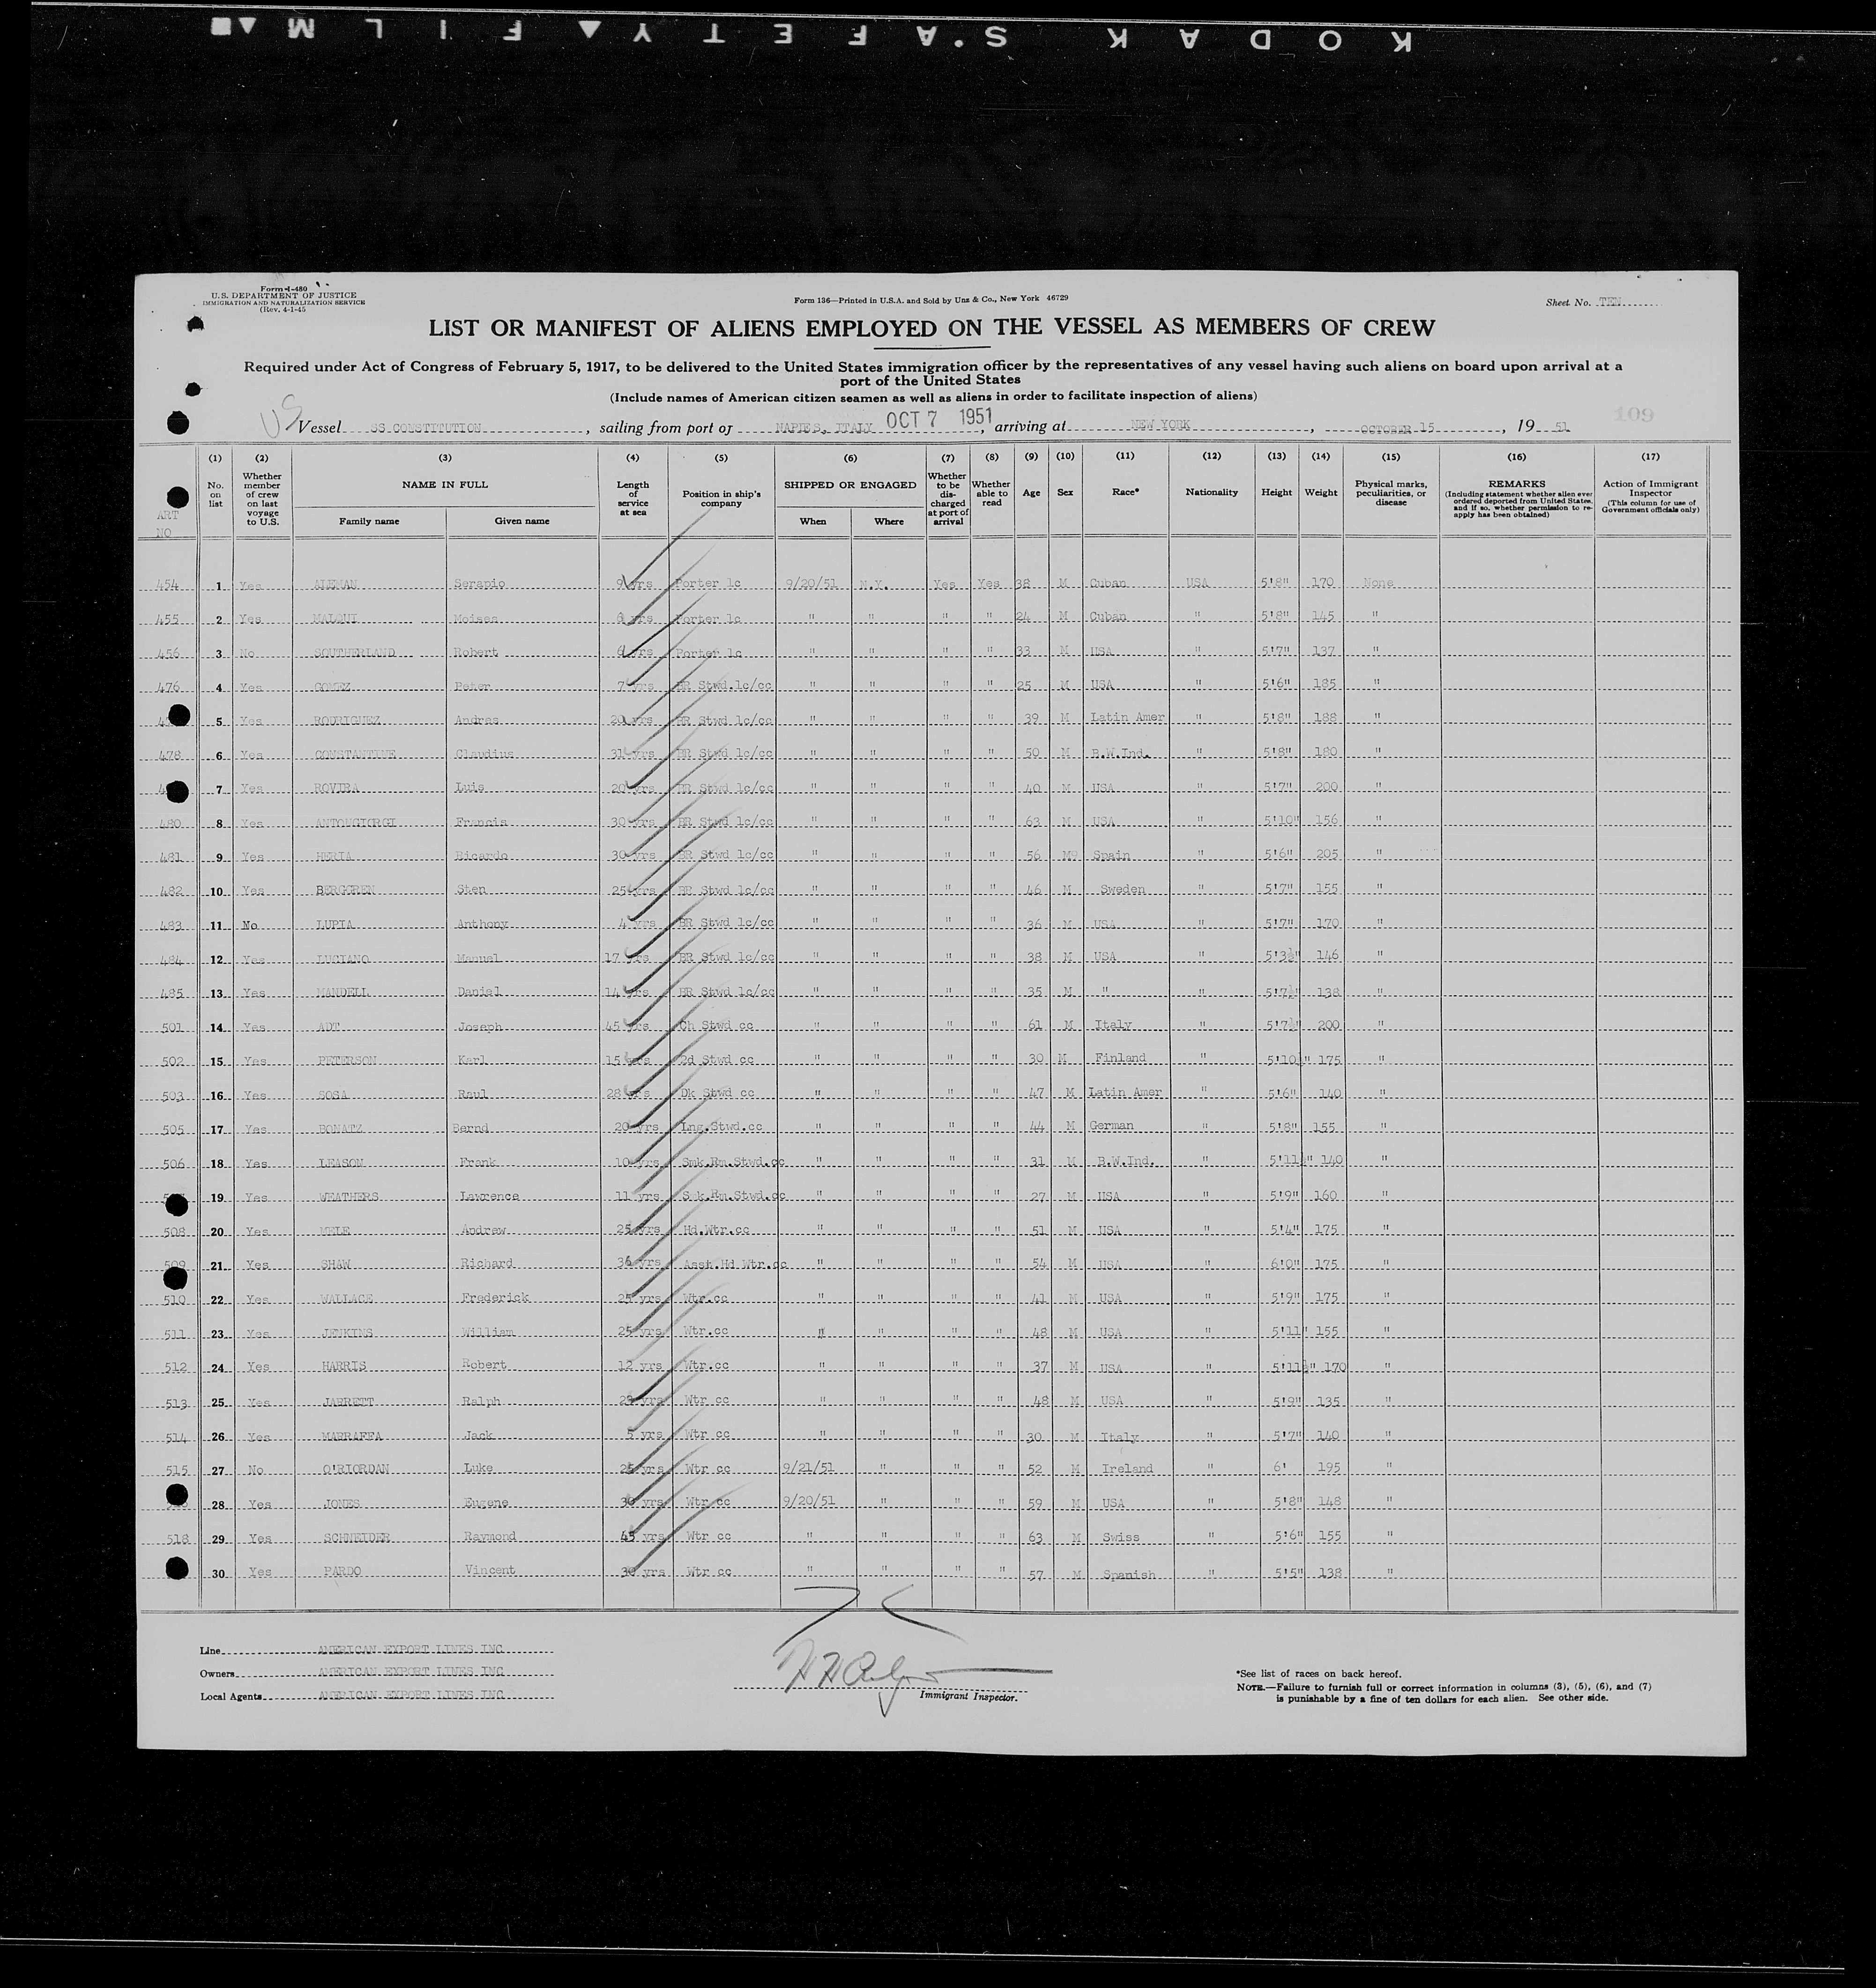 KODAK S'AFETY▲FILM▲■
Form I-480
U.S. DEPARTMENT OF JUSTICE
IMMIGRATION AND NATURALIZATION SERVICE
(Rev. 4-1-45
Form 136—Printed in U.S.A. and Sold by Unz & Co., New York 46729
Sheet No. TEN
LIST OR MANIFEST OF ALIENS EMPLOYED ON THE VESSEL AS MEMBERS OF CREW
Required under Act of Congress of February 5, 1917, to be delivered to the United States immigration officer by the representatives of any vessel having such aliens on board upon arrival at a
port of the United States
(Include names of American citizen seamen as well as aliens in order to facilitate inspection of aliens)
109
US Vessel SS CONSTITUTION, sailing from port of NAPLES, ITALY OCT 7 1951, arriving at NEW YORK, OCTOBER 15, 19 51
ART NO
(1) No. on list
(2) Whether member of crew on last voyage to U.S.
(3) NAME IN FULL Family name Given name
(4) Length of service at sea
(5) Position in ship's company
(6) SHIPPED OR ENGAGED When Where
(7) Whether to be discharged at port of arrival
(8) Whether able to read
(9) Age
(10) Sex
(11) Race*
(12) Nationality
(13) Height
(14) Weight
(15) Physical marks, peculiarities, or disease
(16) REMARKS (Including statement whether alien ever ordered deported from United States, and if so, whether permission to re-apply has been obtained)
(17) Action of Immigrant Inspector (This column for use of Government officials only)
454 1 Yes ALEMAN Serapio 9 yrs Porter 1c 9/20/51 N.Y. Yes Yes 38 M Cuban USA 5'8" 170 None
455 2 Yes MALQUI Moises 6 yrs Porter 1c " " " " 24 M Cuban " 5'8" 145 "
456 3 No SOUTHERLAND Robert 6 yrs Porter 1c " " " " 33 M USA " 5'7" 137 "
476 4 Yes GOMEZ Peter 7 yrs BR Stwd.1c/cc " " " " 25 M USA " 5'6" 185 "
5 Yes RODRIGUEZ Andres 20 yrs BR Stwd 1c/cc " " " " 39 M Latin Amer " 5'8" 188 "
478 6 Yes CONSTANTINE Claudius 31 yrs BR Stwd 1c/cc " " " " 50 M B.W.Ind. " 5'8" 180 "
7 Yes ROVIRA Luis 20 yrs BR Stwd 1c/cc " " " " 40 M USA " 5'7" 200 "
480 8 Yes ANTONGIORGI Francis 30 yrs BR Stwd 1c/cc " " " " 63 M USA " 5'10" 156 "
481 9 Yes HERIA Ricardo 30 yrs BR Stwd 1c/cc " " " " 56 M Spain " 5'6" 205 "
482 10 Yes BERGGREN Sten 25 yrs BR Stwd 1c/cc " " " " 46 M Sweden " 5'7" 155 "
483 11 No LUPIA Anthony 4 yrs BR Stwd 1c/cc " " " " 36 M USA " 5'7" 170 "
484 12 Yes LUCIANO Manuel 17 yrs BR Stwd 1c/cc " " " " 38 M USA " 5'3½" 146 "
485 13 Yes MANDELL Daniel 14 yrs BR Stwd 1c/cc " " " " 35 M " " 5'7½" 138 "
501 14 Yes ADT Joseph 45 yrs Ch Stwd cc " " " " 61 M Italy " 5'7½" 200 "
502 15 Yes PETERSON Karl 15 yrs 2d Stwd cc " " " " 30 M Finland " 5'10½" 175 "
503 16 Yes SOSA Raul 28 yrs Dk Stwd cc " " " " 47 M Latin Amer " 5'6" 140 "
505 17 Yes BONATZ Bernd 20 yrs Lng.Stwd.cc " " " " 44 M German " 5'8" 155 "
506 18 Yes LEASON Frank 10 yrs Smk.Rm.Stwd.cc " " " " 31 M B.W.Ind. " 5'11½" 140 "
19 Yes WEATHERS Lawrence 11 yrs Smk.Rm.Stwd.cc " " " " 27 M USA " 5'9" 160 "
508 20 Yes MELE Andrew 25 yrs Hd.Wtr.cc " " " " 51 M USA " 5'4" 175 "
509 21 Yes SHAW Richard 36 yrs Asst.Hd Wtr.cc " " " " 54 M USA " 6'0" 175 "
510 22 Yes WALLACE Frederick 25 yrs Wtr.cc " " " " 41 M USA " 5'9" 175 "
511 23 Yes JENKINS William 25 yrs Wtr.cc " " " " 48 M USA " 5'11" 155 "
512 24 Yes HARRIS Robert 12 yrs Wtr.cc " " " " 37 M USA " 5'11½" 170 "
513 25 Yes JARRETT Ralph yrs Wtr cc " " " " 48 M USA " 5'9" 135 "
514 26 Yes MARRAFFA Jack 5 yrs Wtr cc " " " " 30 M Italy " 5'7" 140 "
515 27 No O'RIORDAN Luke 25 yrs Wtr cc 9/21/51 " " " 52 M Ireland " 6' 195 "
28 Yes JONES Eugene 30 yrs Wtr cc 9/20/51 " " " 59 M USA " 5'8" 148 "
518 29 Yes SCHNEIDER Raymond 45 yrs Wtr cc " " " " 63 M Swiss " 5'6" 155 "
30 Yes PARDO Vincent 30 yrs Wtr cc " " " " 57 M Spanish " 5'5" 138 "
Line AMERICAN EXPORT LINES INC
Owners AMERICAN EXPORT LINES INC
Local Agents AMERICAN EXPORT LINES INC
Immigrant Inspector.
*See list of races on back hereof.
NOTE.—Failure to furnish full or correct information in columns (3), (5), (6), and (7)
is punishable by a fine of ten dollars for each alien. See other side.